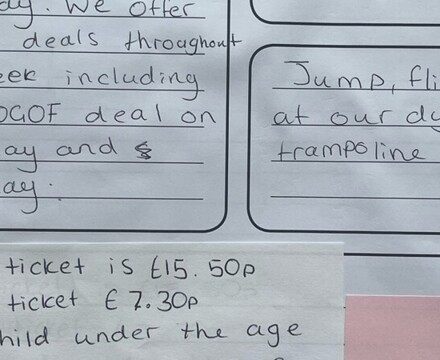 ay. We offer
deals throughout
eek including
OGOF deal on
ay and
ay.
Jump, fli
at our dy
trampoline
ticket is £15.50p
ticket £7.30p
hild under the age